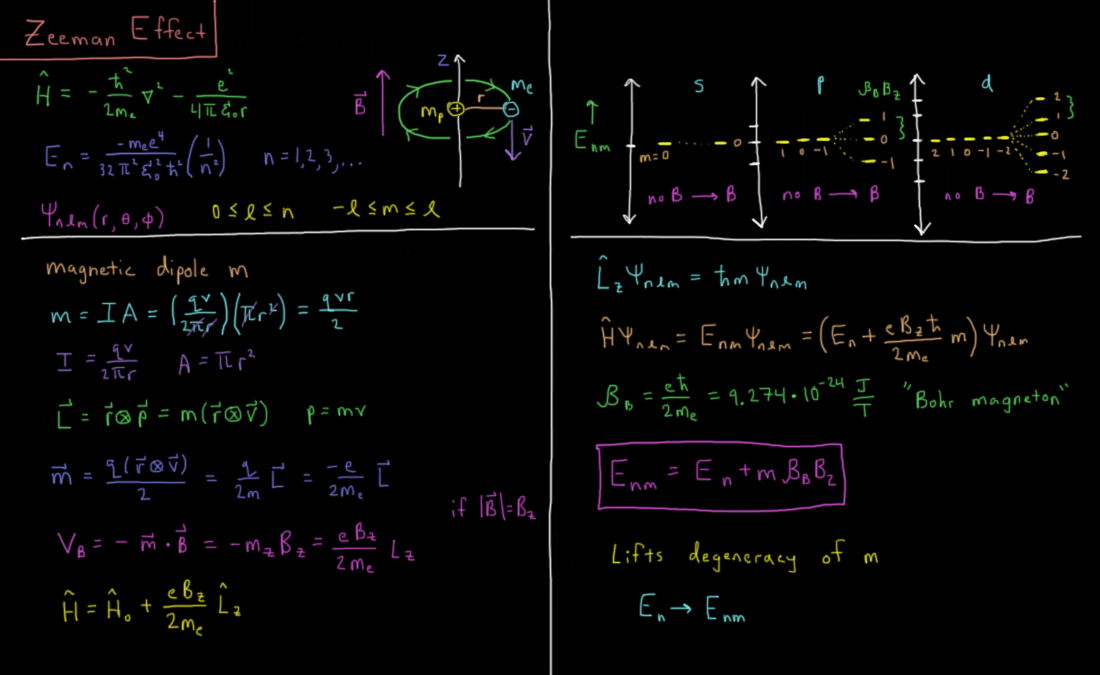 Zeeman Effect
Ĥ = - ħ²/2mₑ ∇² - e²/4πε₀r
Eₙ = -mₑe⁴/32π²ε₀²ħ² (1/n²) n = 1,2,3,...
Ψₙₗₘ(r,θ,φ) 0 ≤ l ≤ n -l ≤ m ≤ l
B⃗ z mₚ + r - mₑ v⃗
magnetic dipole m
m = IA = (qv/2πr)(πr²) = qvr/2
I = qv/2πr A = πr²
L⃗ = r⃗⊗p⃗ = m(r⃗⊗v⃗) p = mv
m⃗ = q(r⃗⊗v⃗)/2 = q/2m L⃗ = -e/2mₑ L⃗
if |B⃗|=B_z
V_B = - m⃗·B⃗ = -m_z B_z = eB_z/2mₑ L_z
Ĥ = Ĥ₀ + eB_z/2mₑ L̂_z
s p β_B B_z d
Eₙₘ
m=0 0
1 0 -1 1 0 -1
2 1 0 -1 -2 2 1 0 -1 -2
no B → B no B → B no B → B
L̂_z Ψₙₗₘ = ħm Ψₙₗₘ
ĤΨₙₗₘ = EₙₘΨₙₗₘ = (Eₙ + eB_zħ/2mₑ m) Ψₙₗₘ
β_B = eħ/2mₑ = 9.274·10⁻²⁴ J/T "Bohr magneton"
Eₙₘ = Eₙ + m β_B B_z
Lifts degeneracy of m
Eₙ → Eₙₘ